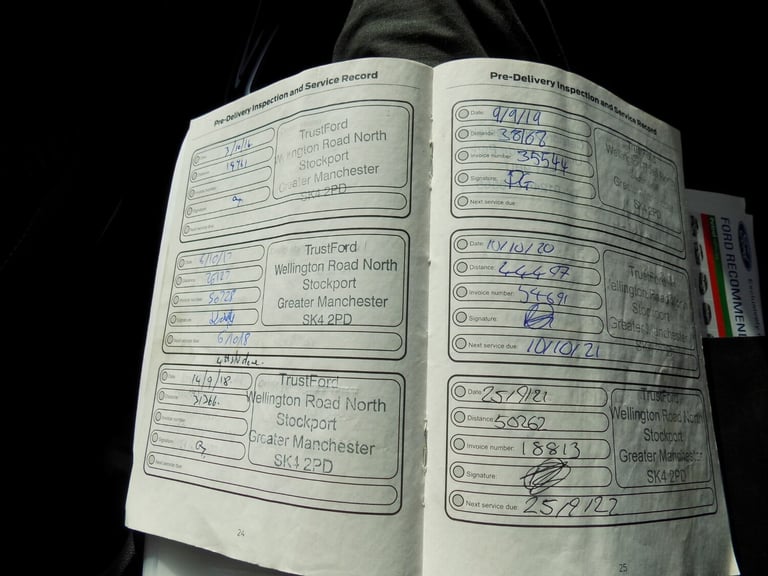 Pre-Delivery Inspection and Service Record
Date: 3/10/16
Distance: 19761
Invoice number:
Signature:
Next service due:
TrustFord
Wellington Road North
Stockport
Greater Manchester
SK4 2PD
Date: 6/10/17
Distance: 26127
Invoice number: 50728
Signature:
Next service due: 6/10/18
TrustFord
Wellington Road North
Stockport
Greater Manchester
SK4 2PD
Date: 14/9/18
Distance: 31366.
Invoice number:
Signature:
Next service due:
TrustFord
Wellington Road North
Stockport
Greater Manchester
SK4 2PD
24
Pre-Delivery Inspection and Service Record
Date: 9/9/19
Distance: 38167
Invoice number: 35544
Signature: PG
Next service due:
SK4 2PD
Date: 10/10/20
Distance: 44497
Invoice number: 54691
Signature:
Next service due: 10/10/21
TrustFord
Wellington Road North
Stockport
Greater Manchester
SK4 2PD
Date: 25/9/21
Distance: 50262
Invoice number: 18813
Signature:
Next service due: 25/9/22
TrustFord
Wellington Road North
Stockport
Greater Manchester
SK4 2PD
25
Ford
FORD RECOMMEN